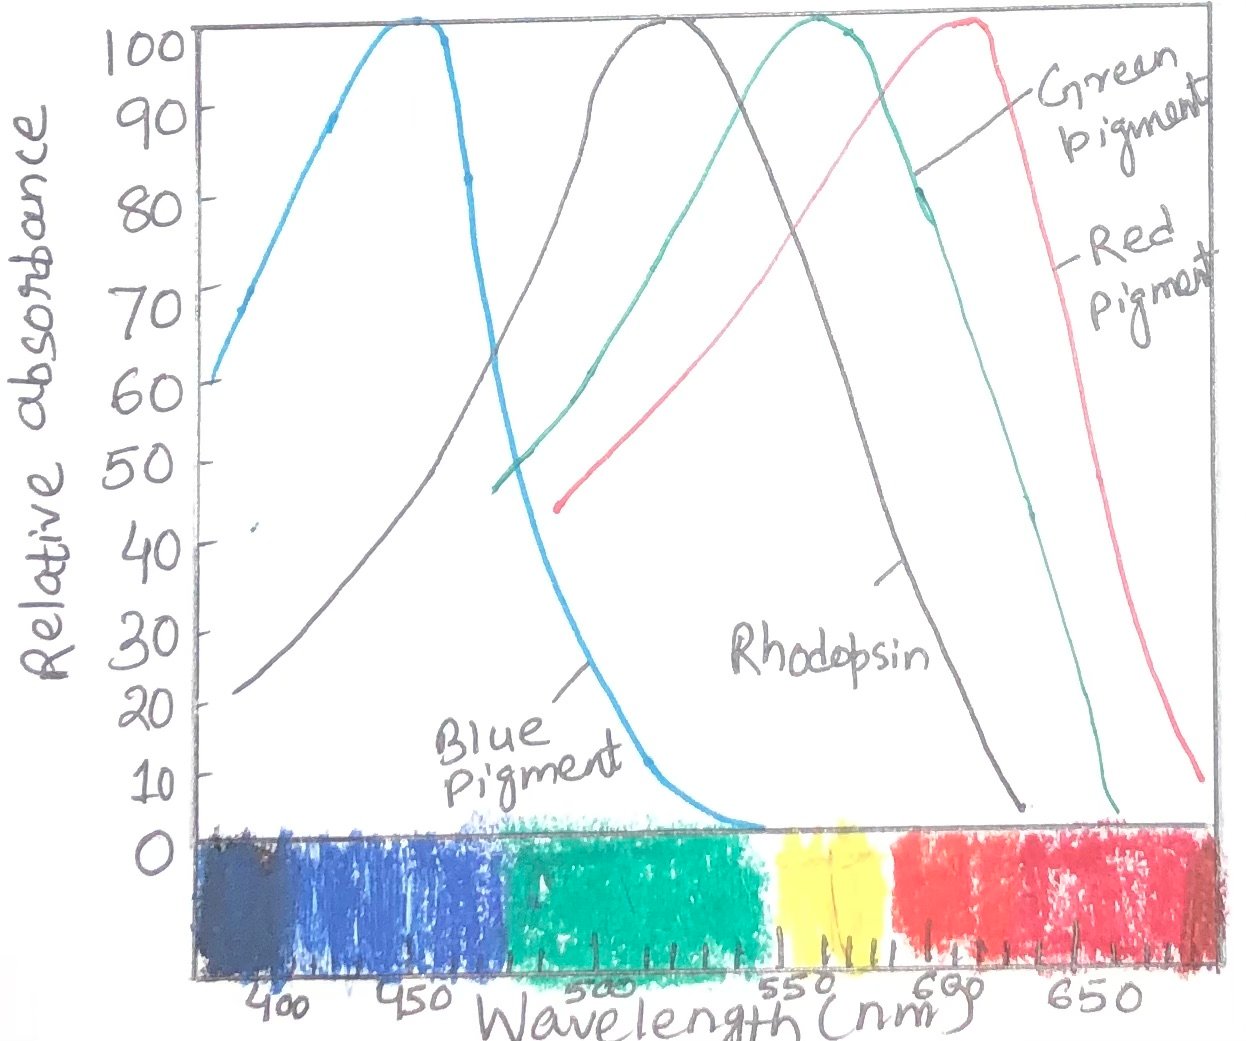 Relative absorbance
100
90
80
70
60
50
40
30
20
10
0
Green
pigment
Red
Pigment
Rhodopsin
Blue
Pigment
400 450 500 550 600 650
Wavelength (nm)